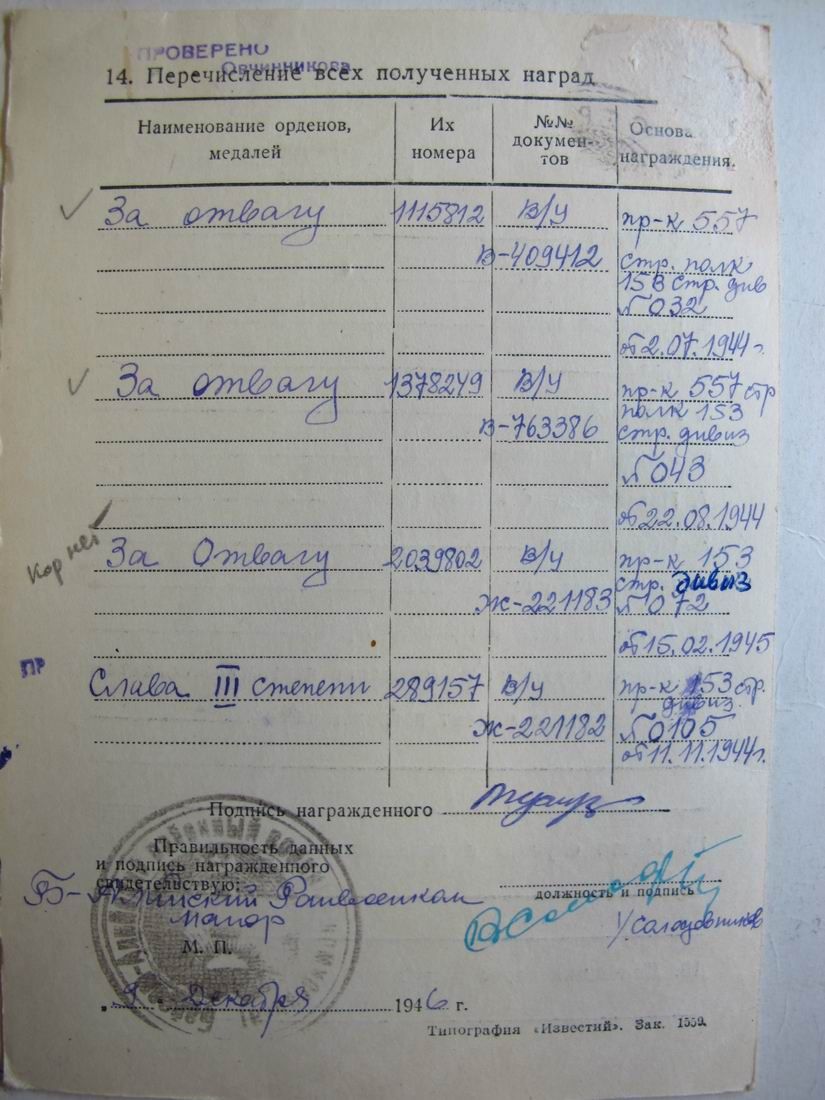 ПРОВЕРЕНО
Овчинникова
14. Перечисление всех полученных наград
Наименование орденов, медалей
Их номера
№№ документов
Основа награждения.
За отвагу 1115812 В/У пр-к 557
В-409412 стр. полк
153 стр. див
№ 032
от 2.07.1944 г.
За отвагу 1378249 В/У пр-к 557 стр
полк 153
В-763386 стр. дивиз
№ 043
от 22.08.1944
Кор нет
За Отвагу 2039802 В/У пр-к 153
стр. дивиз
Ж-221183 № 072
от 15.02.1945
ПР
Слава III степени 289157 В/У пр-к 153 стр.
дивиз.
Ж-221182 № 0105
от 11.11.1944г.
Подпись награжденного
Правильность данных
и подпись награжденного
свидетельствую:
должность и подпись
Майор
М. П.
9 Декабря 1946 г.
Типография «Известий». Зак. 1559.